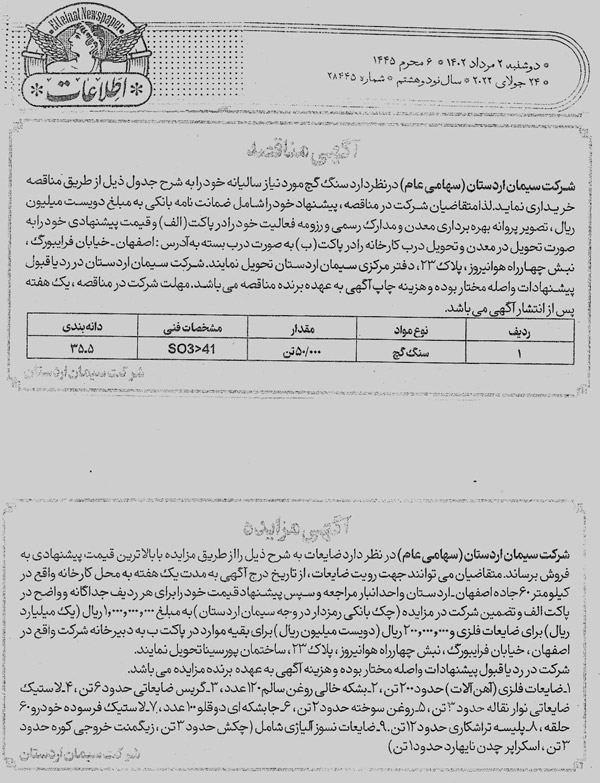 Ettelaat Newspaper
اطلاعات
* دوشنبه ۲ مرداد ۱۴۰۲ * ۶ محرم ۱۴۴۵
* ۲۴ جولای ۲۰۲۲ * سال نود و هشتم * شماره ۲۸۴۴۵
آگهی مناقصه
شرکت سیمان اردستان (سهامی عام) در نظر دارد سنگ گچ مورد نیاز سالیانه خود را به شرح جدول ذیل از طریق مناقصه
خریداری نماید. لذا متقاضیان شرکت در مناقصه، پیشنهاد خود را شامل ضمانت نامه بانکی به مبلغ دویست میلیون
ریال، تصویر پروانه بهره برداری معدن و مدارک رسمی و رزومه فعالیت خود را در پاکت (الف) و قیمت پیشنهادی خود را به
صورت تحویل در معدن و تحویل درب کارخانه را در پاکت (ب) به صورت درب بسته به آدرس: اصفهان - خیابان فرایبورگ،
نبش چهارراه هوانیروز، پلاک ۲۳، دفتر مرکزی سیمان اردستان تحویل نمایند. شرکت سیمان اردستان در رد یا قبول
پیشنهادات واصله مختار بوده و هزینه چاپ آگهی به عهده برنده مناقصه می باشد. مهلت شرکت در مناقصه، یک هفته
پس از انتشار آگهی می باشد.
ردیف نوع مواد مقدار مشخصات فنی دانه بندی
۱ سنگ گچ ۵۰/۰۰۰ تن SO3>41 ۳۵.۵
شرکت سیمان اردستان
آگهی مزایده
شرکت سیمان اردستان (سهامی عام) در نظر دارد ضایعات به شرح ذیل را از طریق مزایده با بالاترین قیمت پیشنهادی به
فروش برساند. متقاضیان می توانند جهت رویت ضایعات، از تاریخ درج آگهی به مدت یک هفته به محل کارخانه واقع در
کیلومتر ۶۰ جاده اصفهان - اردستان واحد انبار مراجعه و سپس پیشنهاد قیمت خود را برای هر ردیف جداگانه و واضح در
پاکت الف و تضمین شرکت در مزایده (چک بانکی رمزدار در وجه سیمان اردستان) به مبلغ ۱,۰۰۰,۰۰۰,۰۰۰ ریال (یک میلیارد
ریال) برای ضایعات فلزی و ۲۰۰,۰۰۰,۰۰۰ ریال (دویست میلیون ریال) برای بقیه موارد در پاکت ب به دبیرخانه شرکت واقع در
اصفهان، خیابان فرایبورگ، نبش چهارراه هوانیروز، پلاک ۲۳، ساختمان پورسینا تحویل نمایند.
شرکت در رد یا قبول پیشنهادات واصله مختار بوده و هزینه آگهی به عهده برنده مزایده می باشد.
۱ـ ضایعات فلزی (آهن آلات) حدود ۲۰۰ تن، ۲ـ بشکه خالی روغن سالم ۱۲۰ عدد، ۳ـ گریس ضایعاتی حدود ۶ تن، ۴ـ لاستیک
ضایعاتی نوار نقاله حدود ۳ تن، ۵ـ روغن سوخته حدود ۲ تن، ۶ـ جا بشکه ای دوقلو ۱۰۰ عدد، ۷ـ لاستیک فرسوده خودرو ۶۰
حلقه، ۸ـ پلیسه تراشکاری حدود ۱۲ تن. ۹ـ ضایعات نسوز آلیاژی شامل (چکش حدود ۳ تن، زیگمنت خروجی کوره حدود
۳ تن، اسکراپر چدن نایهارد حدود ۱ تن)
شرکت سیمان اردستان